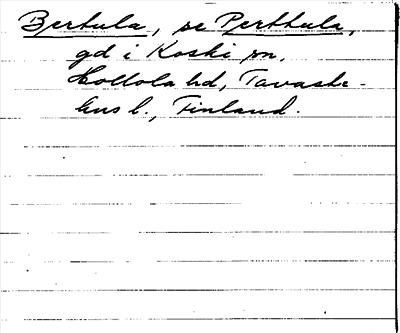 Bertula, se Perttula,
gd i Koski sn,
Hollola hd, Tavaste-
hus l., Finland.